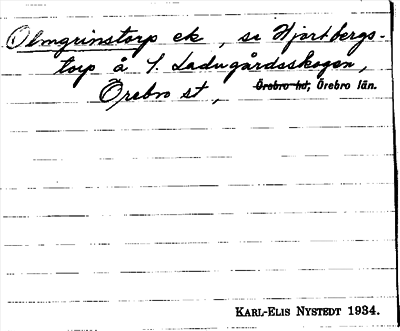 Olmgrinstorp ek, se Hjortbergs-
torp å S. Ladugårdsskogen,
Örebro st, Örebro hd, Örebro län.
KARL-ELIS NYSTEDT 1934.